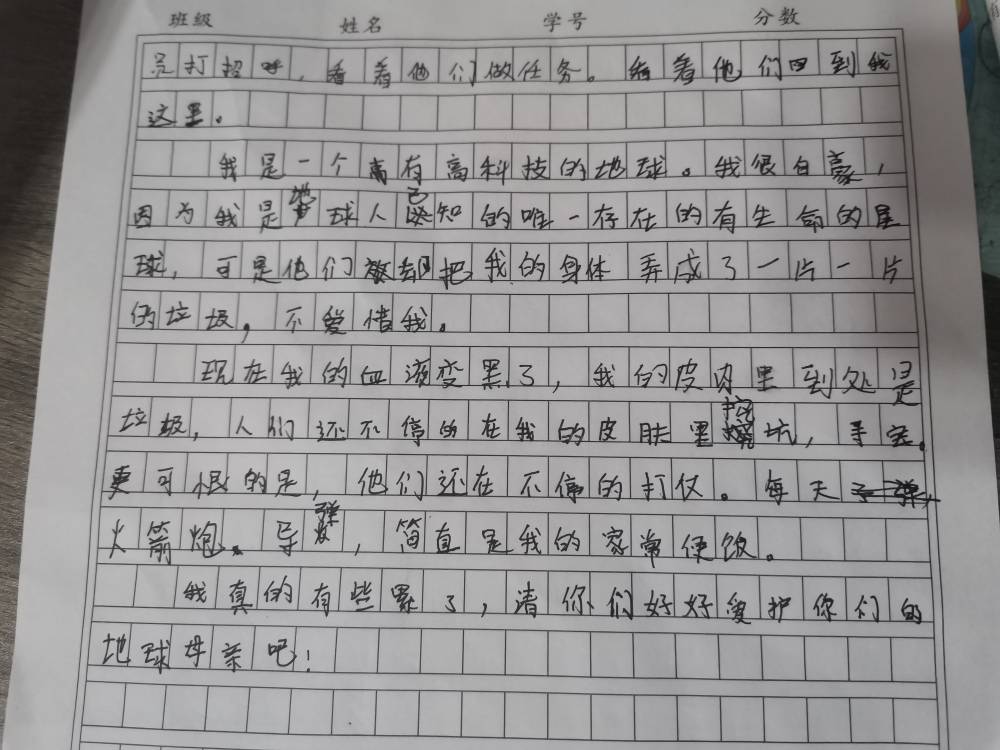 班级 姓名 学号 分数
员打招呼，看着他们做任务。看着他们回到我
这里。
我是一个富有高科技的地球。我很自豪，
因为我是地球人已知的唯一存在的有生命的星
球，可是他们却把我的身体弄成了一片一片
的垃圾，不爱惜我。
现在我的血液变黑了，我的皮肉里到处是
垃圾，人们还不停的在我的皮肤里挖坑，寻宝。
更可恨的是，他们还在不停的打仗。每天
火箭炮、导弹，简直是我的家常便饭。
我真的有些累了，请你们好好爱护你们的
地球母亲吧！